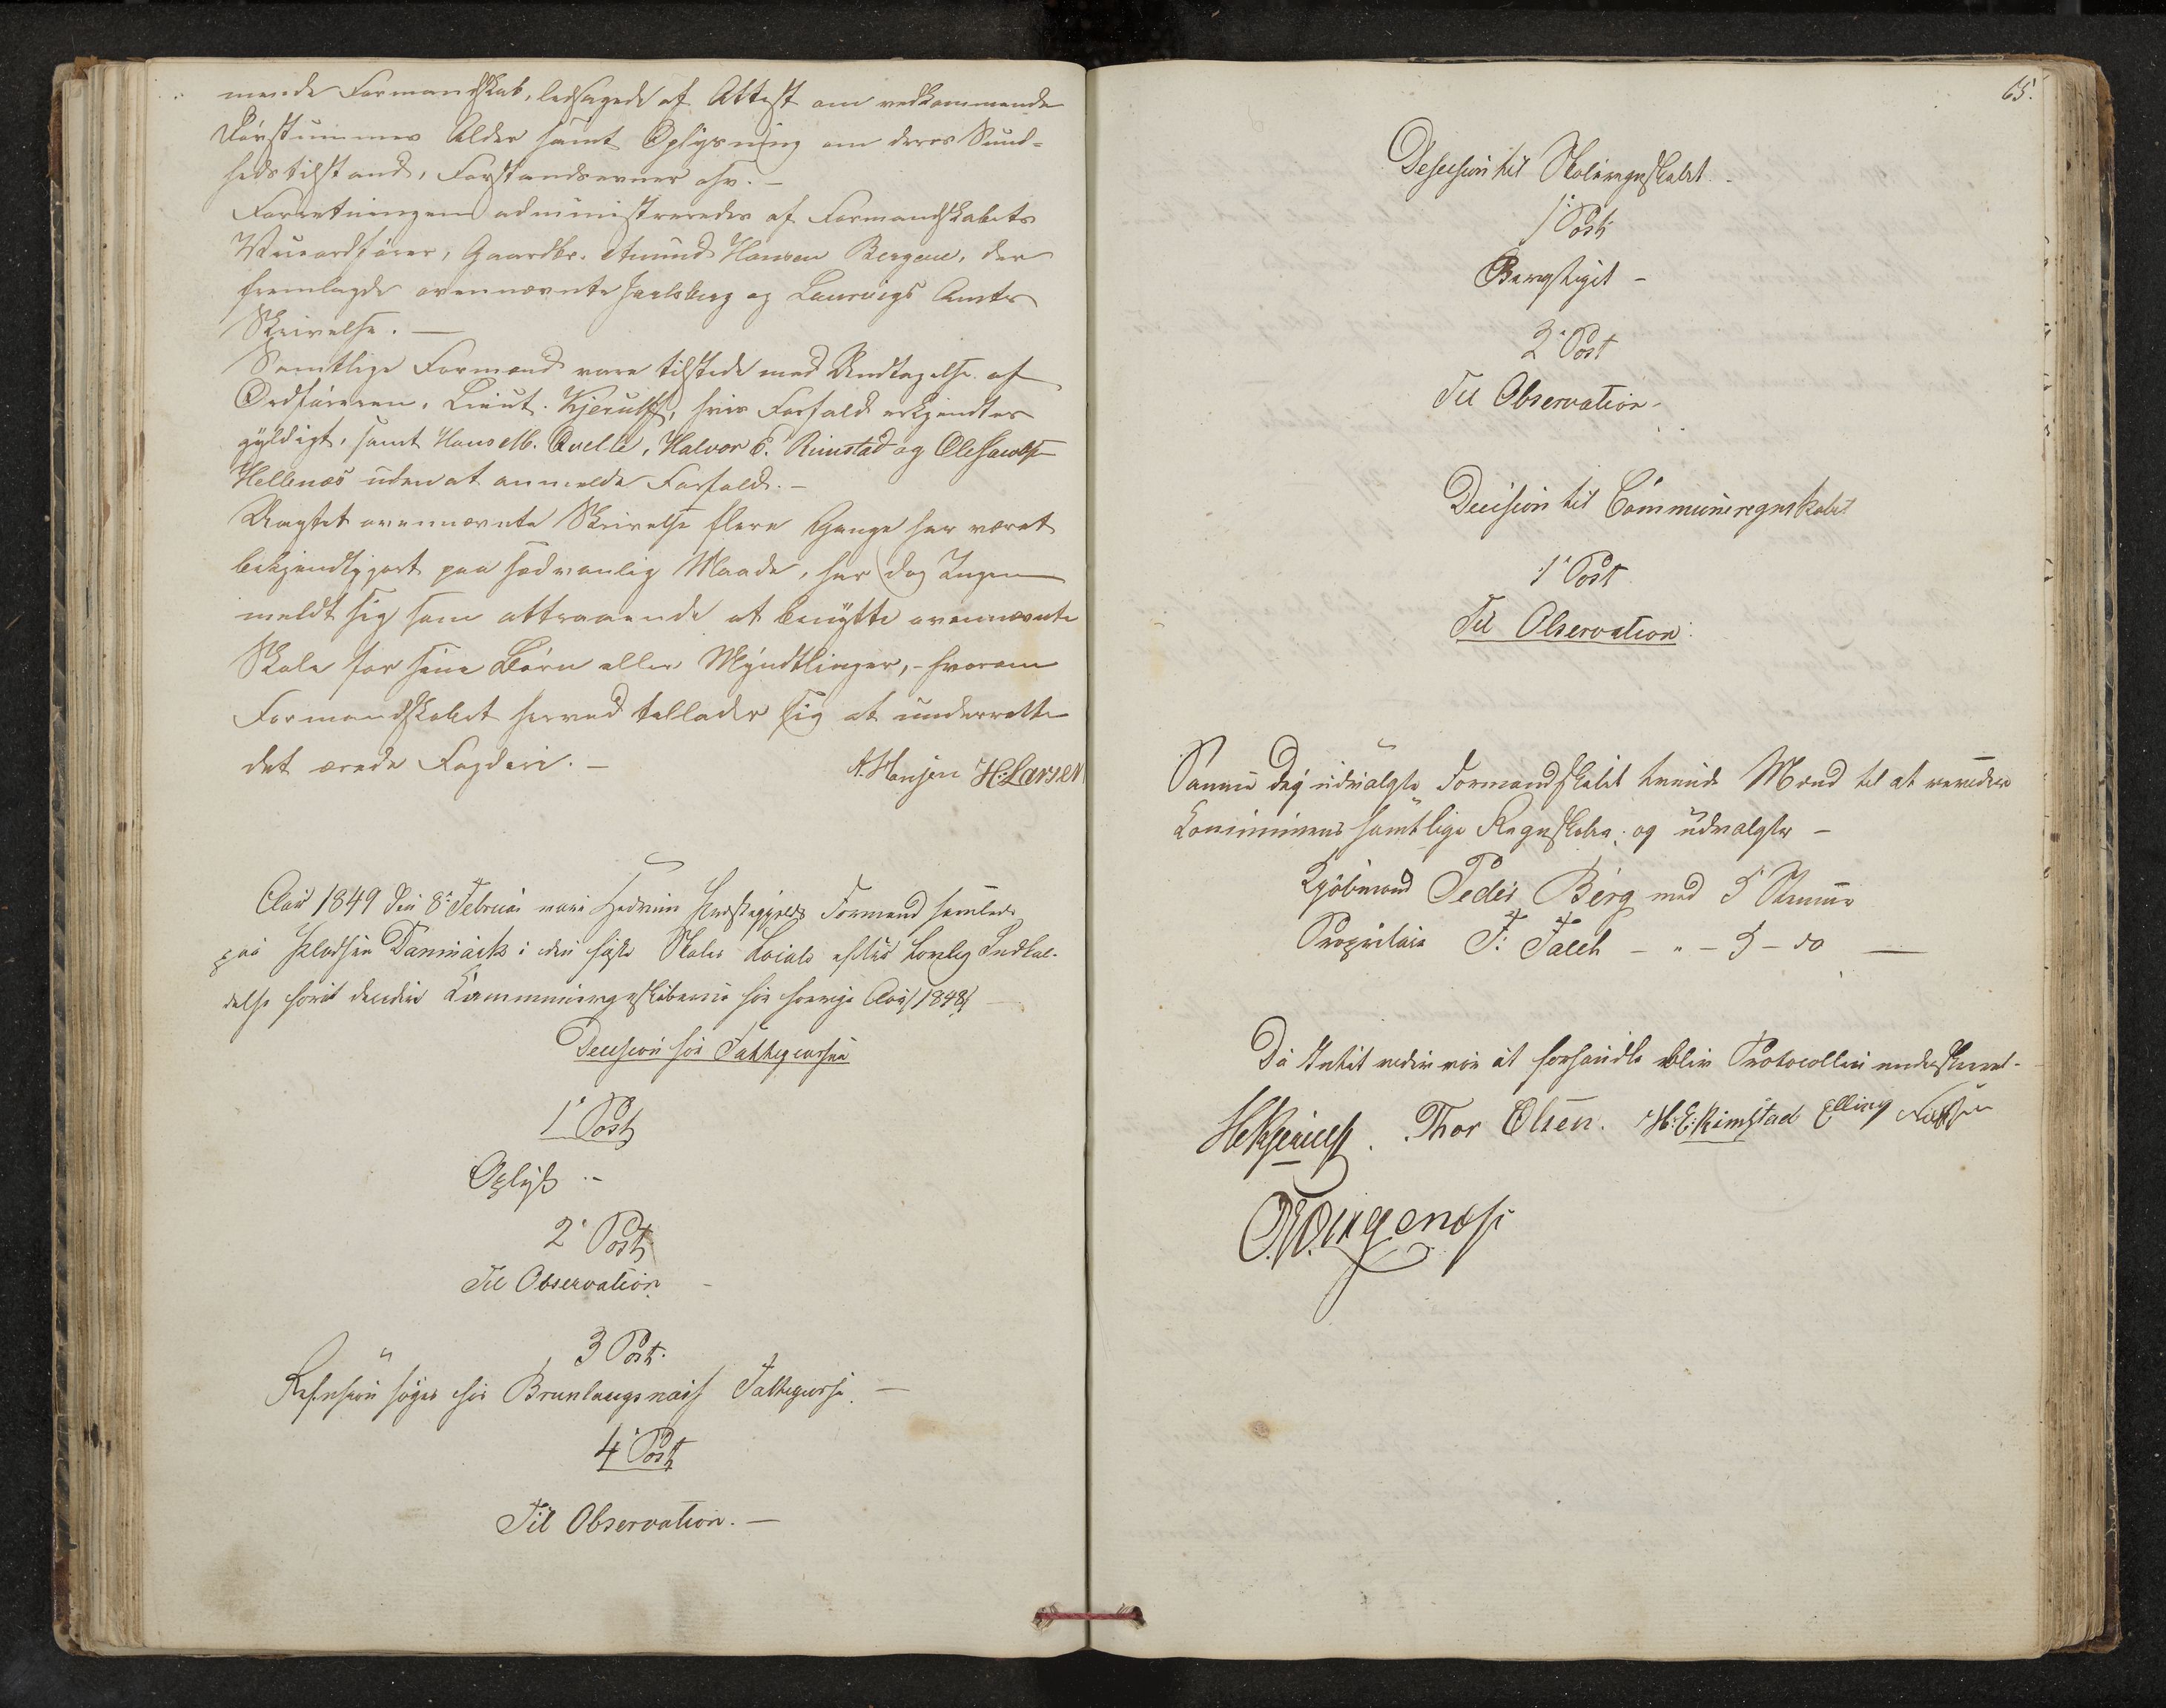 mende Formandskab, ledsaget af Attest om vedkommende
Døvstummes Alder samt Oplysning om deres Sund-
hedstilstand, Forstandsevner osv. –
Forretningen administreredes af Formandskabets
Viceordfører, Gaardbr. Amund Hansen Bergene, der
fremlagde ovennævnte Jarlsberg og Laurvigs Amts
Skrivelse. –
Samtlige Formænd vare tilstede med Undtagelse af
Ordføreren, Lieut. Kjerulf, hvis Forfald erkjendtes
gyldigt, samt Hans M. Qvelle, Halvor E. Rimstad og Ole Jacobs
Hellenæs uden at anmelde Forfald. –
Uagtet ovennævnte Skrivelse flere Gange har været
bekjendtgjort paa sædvanlig Maade, har dog Ingen
meldt sig som attraaende at benytte ovennævnte
Skole for sine Børn eller Myndtlinger, – hvorom
Formandskabet herved tillader sig at underrette
det ærede Fogderi. –
A. Hansen H. Larsen
Aar 1849 den 8de Februar vare Hedrum Præstegjelds Formænd samlede
paa Pladsen Danmark i den faste Skoles Locale efter lovlig Indkal-
delse for at decidere Kommuneregnskaberne for forrige Aar 1848
Decision for Fattigcassen
1 Post
Oplyst –
2 Post
Til Observation –
3 Post.
Refusion søges hos Brunlaugnæs Fattigcasse. –
4 Post
Til Observation. –
65.
Decision til Skoleregnskabet –
1 Post
Bevystiget –
2 Post
Til Observation –
Decision til Communeregnskabet
1 Post
Til Observation.
Samme Dag udvalgte Formandskabet tvende Mænd til at revidere
Communens samtlige Regnskaber; og udvalgtes –
Kjøbmand Peder Berg med 5 Stemme
Proprietair F: Falch – " – 5 – do –
Da Intet videre var at forhandle blev Protocollen underskrevet.
H Kjerulf. Thor Olsen. H: E: Rimstad Elling